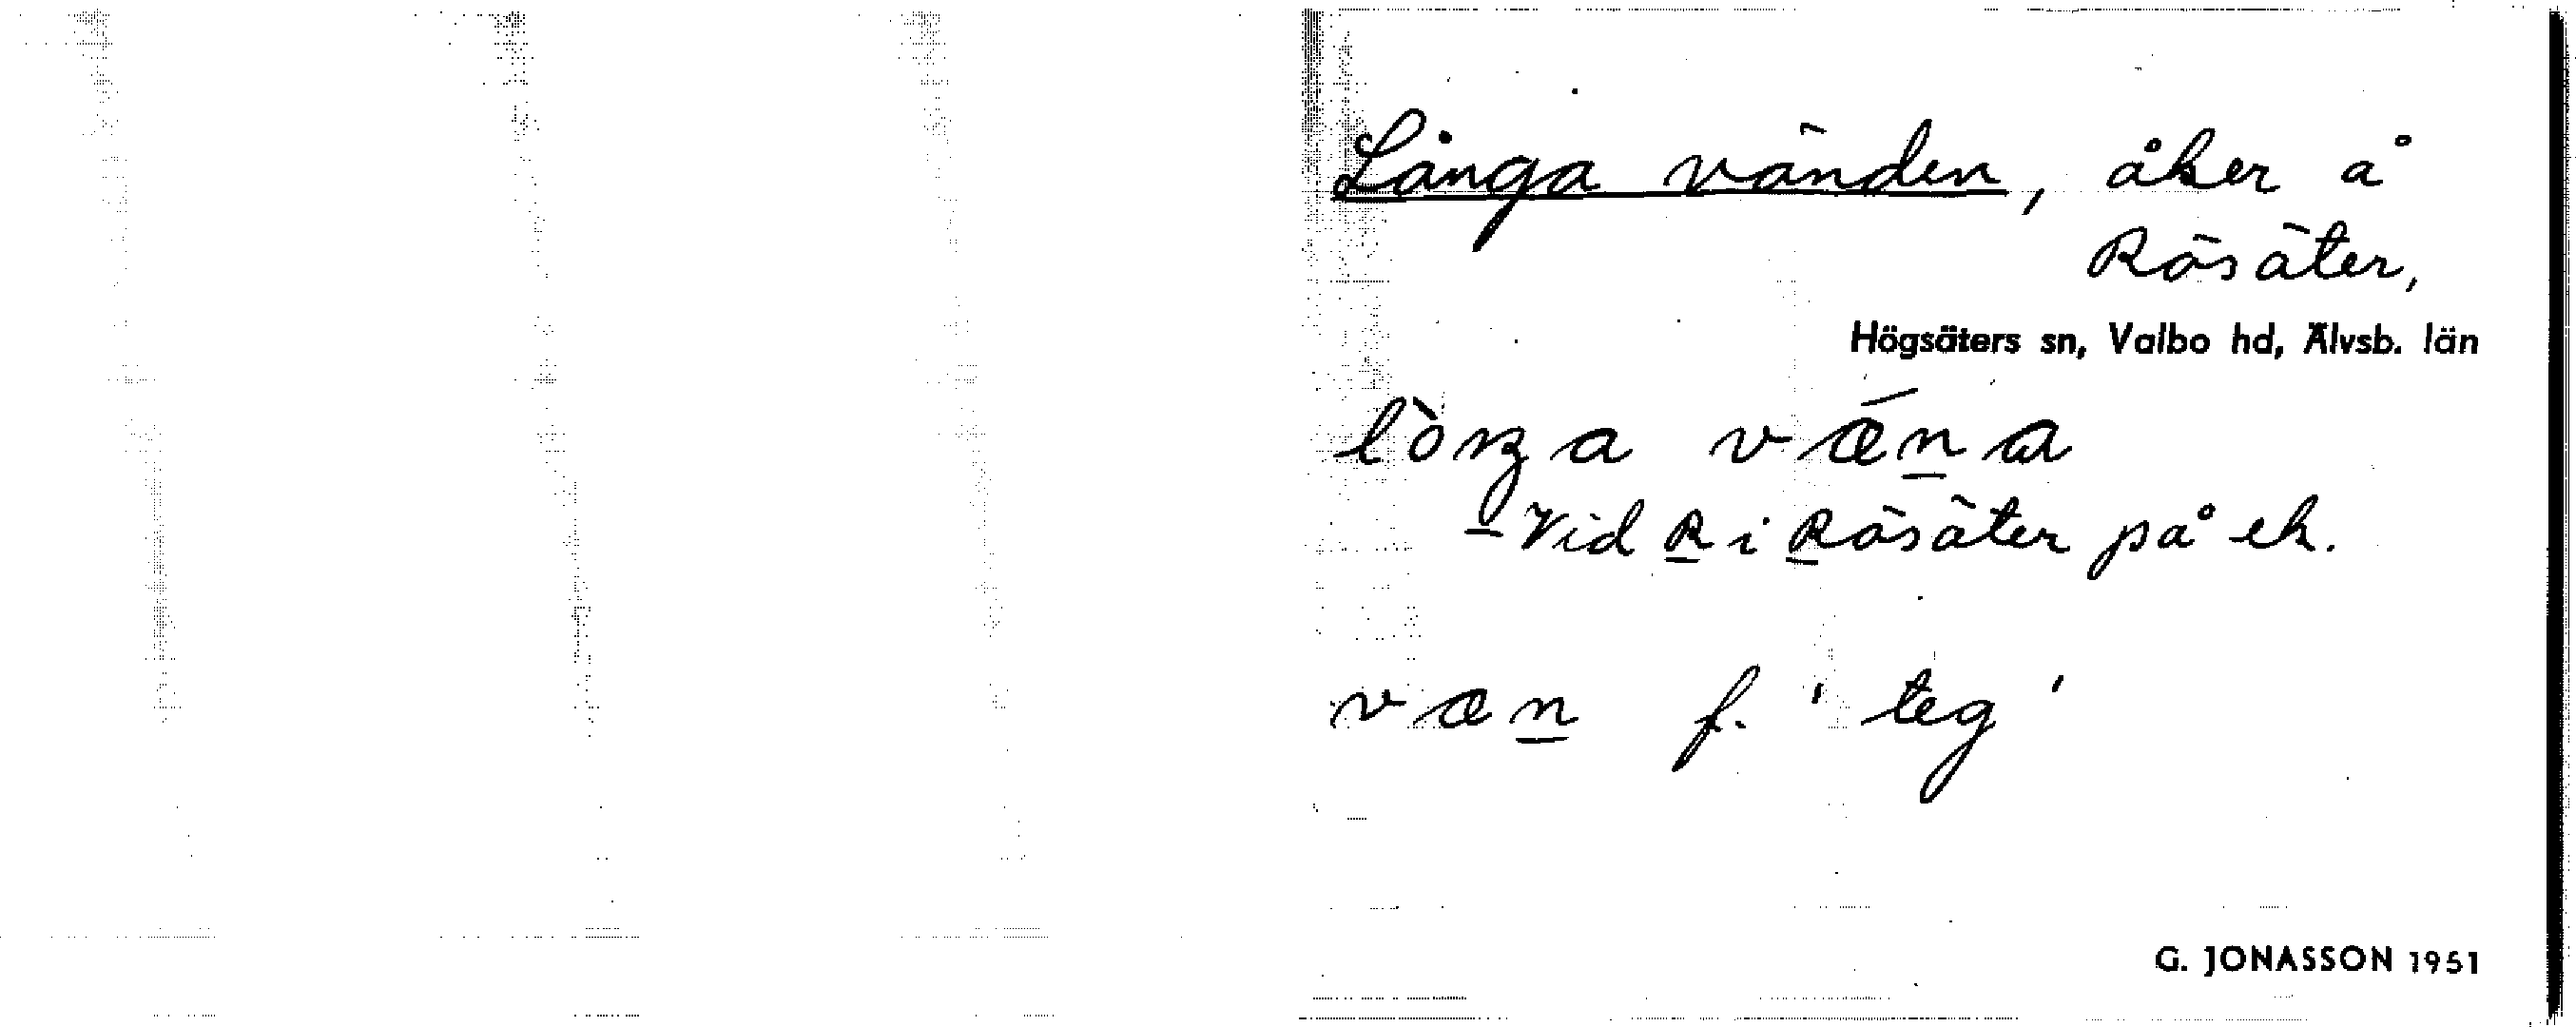 Långa vänden, åker å
Rösäter,
Högsäters sn, Valbo hd, Älvsb. län
lòŋa vǣ́n̲a
Vid R i Rösäter på ek.
væn̲ f. 'teg'
G. JONASSON 1951